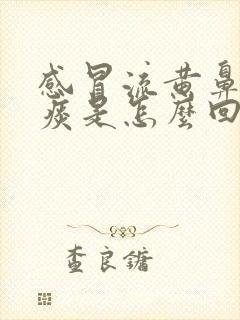 感冒流黄鼻
痰是怎麼回
查良鏞